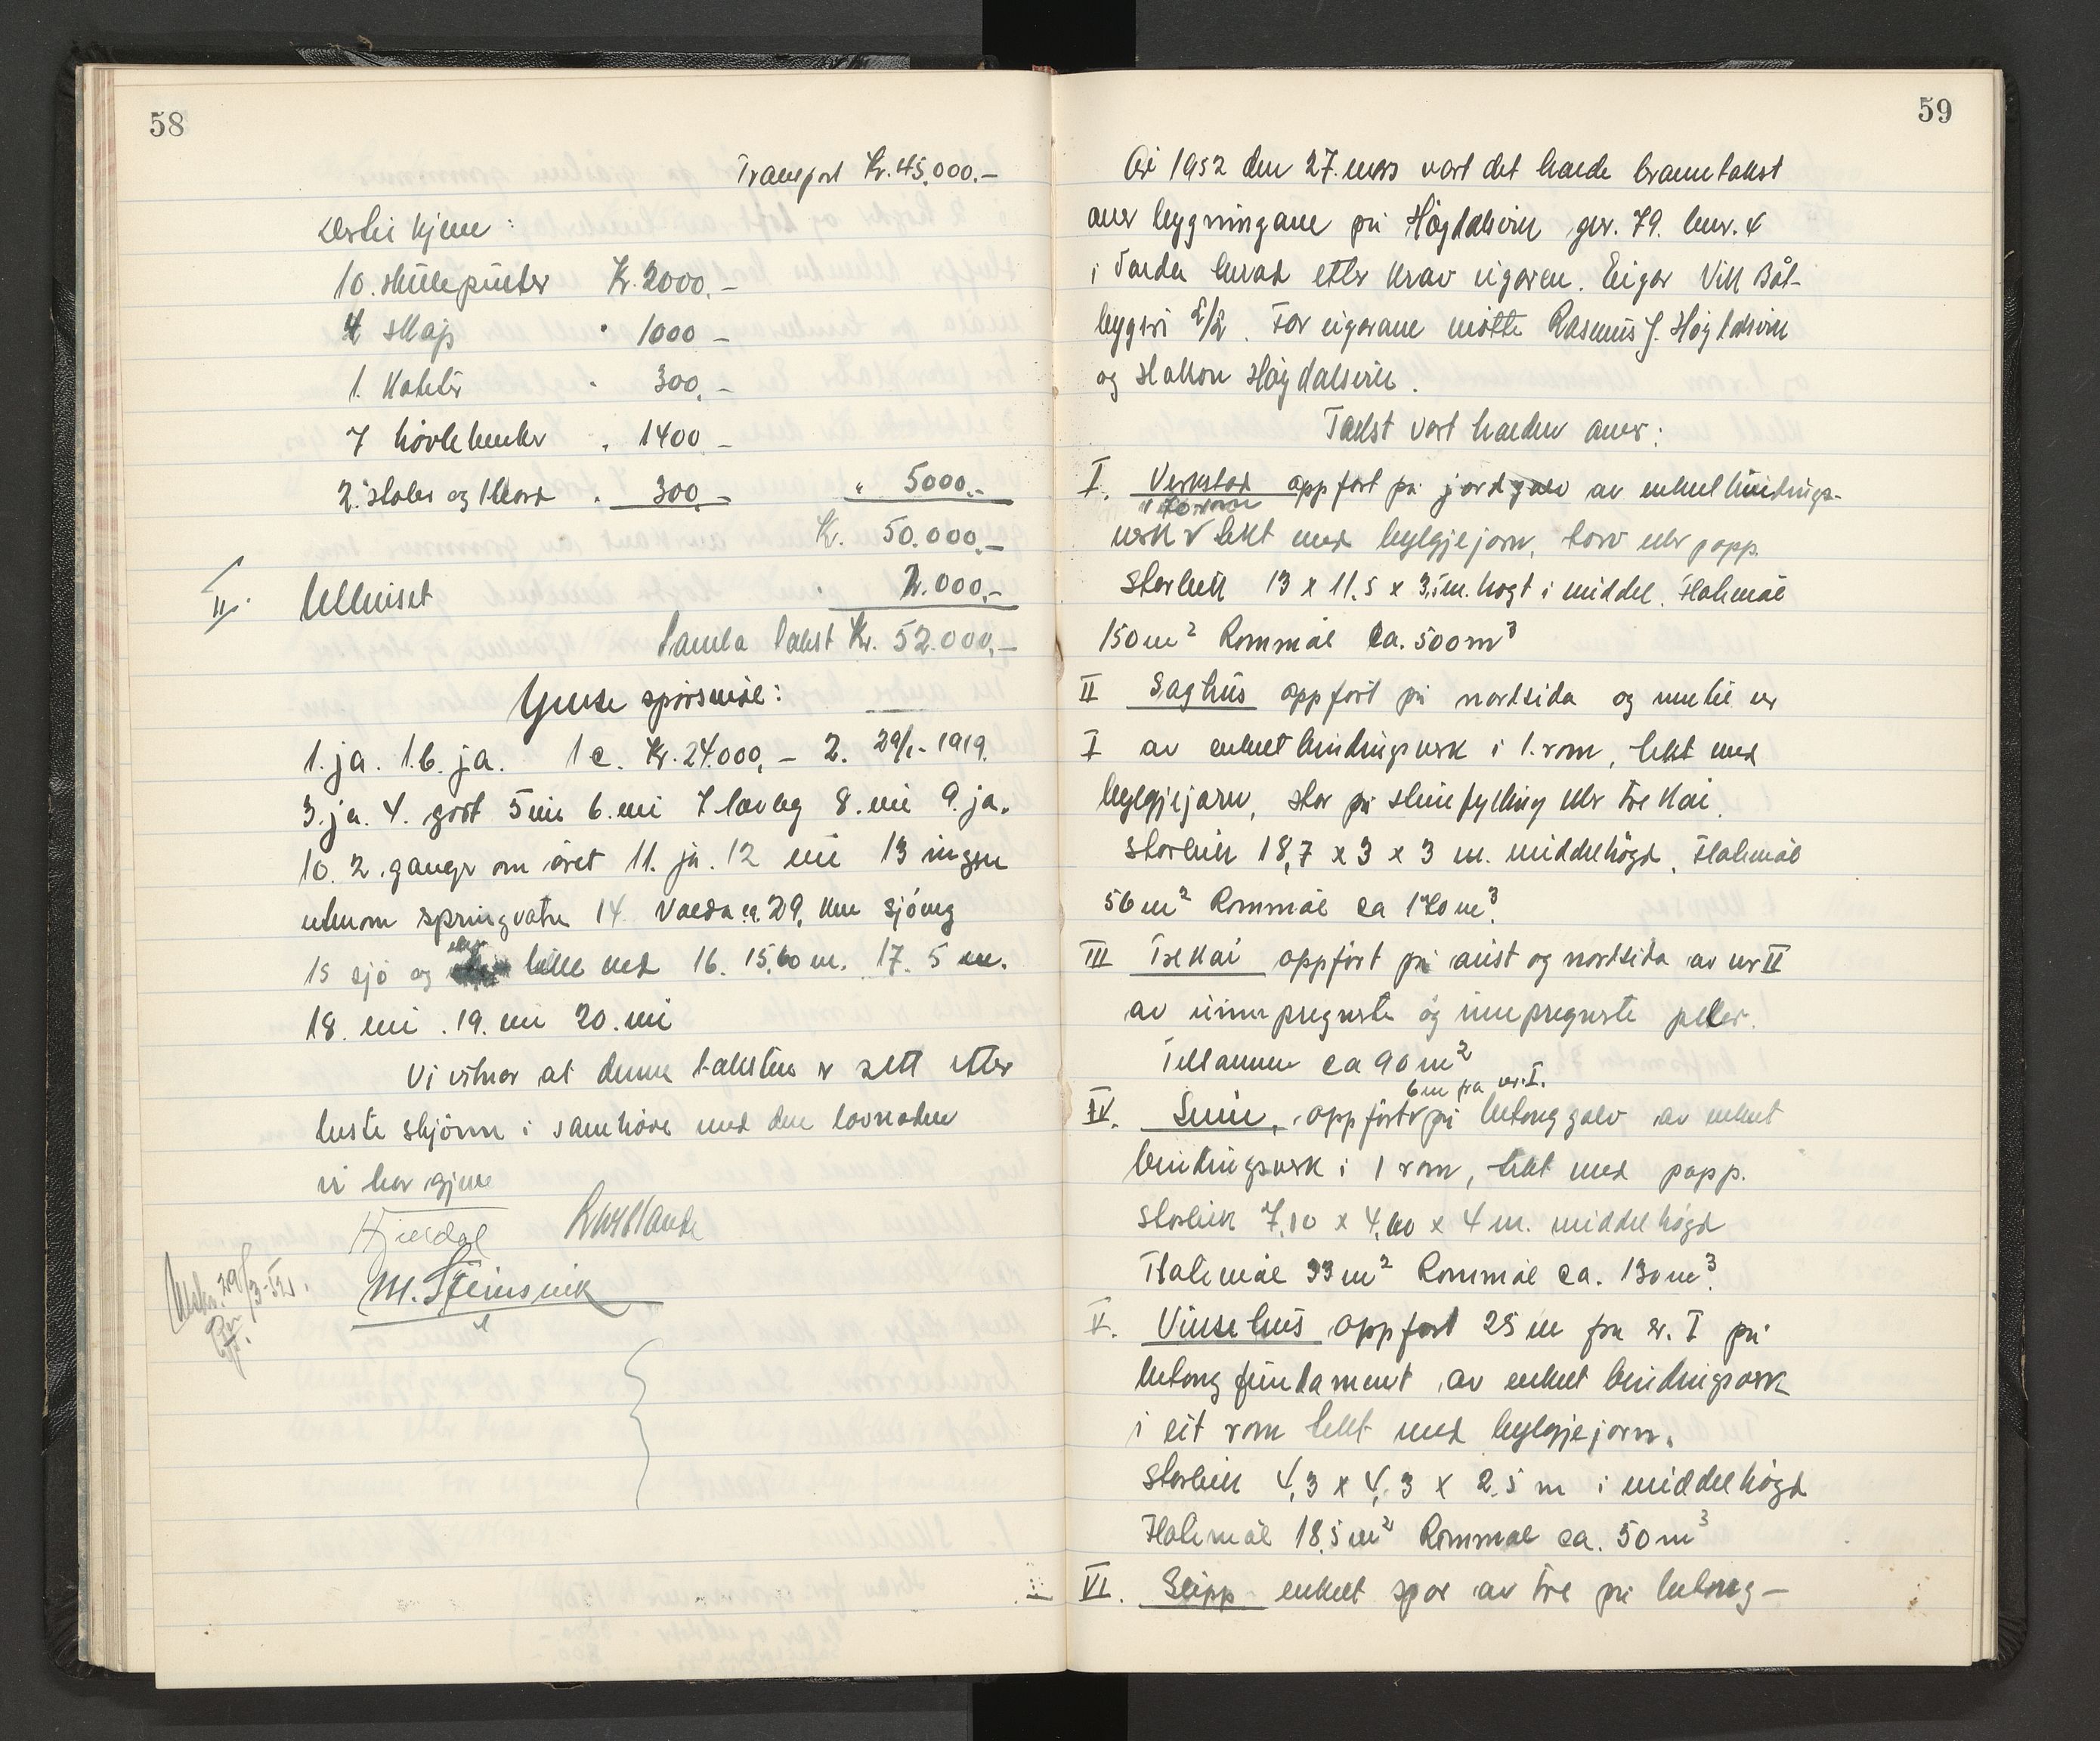 58
Transport Kr. 45.000.-
Dertil kjem:
10. skulepulter Kr. 2000.-
4 skap " 1000 -
1. Kateter " 300,-
7 hövlebenker " 1400 -
2. stoler og 1 bord " 300,- " 5000.-
Kr. 50.000,-
II. Uthuset " 2.000,-
Samla takst Kr. 52.000,-
Ymse spörsmål:
1. ja. 1.b. ja. 1 c. Kr. 24.000,- 2. 29/1- 1919.
3. ja. 4. godt 5 nei 6. nei 7 lovleg 8. nei 9. ja.
10. 2. ganger om året 11. ja. 12 nei 13 ingen
utenom springvatn 14 Varda ca. 29. km sjöveg
15 sjö og eller ved 16. 15,60 m. 17. 5 m.
18. nei. 19. nei 20. nei
Vi vitnar at denne taksten er sett etter
beste skjönn i samhöve med den lovnaden
vi har gjeve
M. Steinsvik
29/3-52.
59
År 1952 den 27. mars vart det halde branntakst
over bygningane på Högdalsvik gnr. 79. bnr. 4
i herad etter krav eigaren. Eigar Vik Båt-
byggeri A/S. For eigarane mötte Rasmus J. Högdalsvik
og Hakon Högdalsvik.
Takst vart halden over:
I. Verkstad oppfört på jordgolv av enkel bindings-
i to rom
verk V tekt med bylgjejarn, torv eller papp.
Storleik 13 x 11.5 x 3,5 m. högt i middel. Flatemål
150 m² Rommål ca. 500 m³
II Saghus oppfört på nordsida og inntil nr
I av enkelt bindingsverk i 1. rom, tekt med
bylgjejarn, står på steinfylling eller tre kai.
Storleik 18,7 x 3 x 3 m. middelhögd. Flatemål
56 m² Rommål ca 170 m³.
III Trekai oppfört på aust og nordsida av nr II
av uimpregnerte og impregnerte peler.
Tilsammen ca 90 m²
6 m fra nr. I.
IV. Smie, oppfört V på betonggolv av enkelt
bindingsverk i 1 rom, tekt med papp.
Storleik 7,10 x 4,60 x 4 m. middelhögd
Flatemål 33 m² Rommål ca. 130 m³.
V. Vinsehus oppfört 25 m fra nr. I på
betong fundament av enkelt bindingsverk
i eit rom tekt med bylgjejarn.
Storleik 4,3 x 4,3 x 2.5 m i middelhögd
Flatemål 18,5 m² Rommål ca. 50 m³
VI. Slipp enkelt spor av tre på betong-